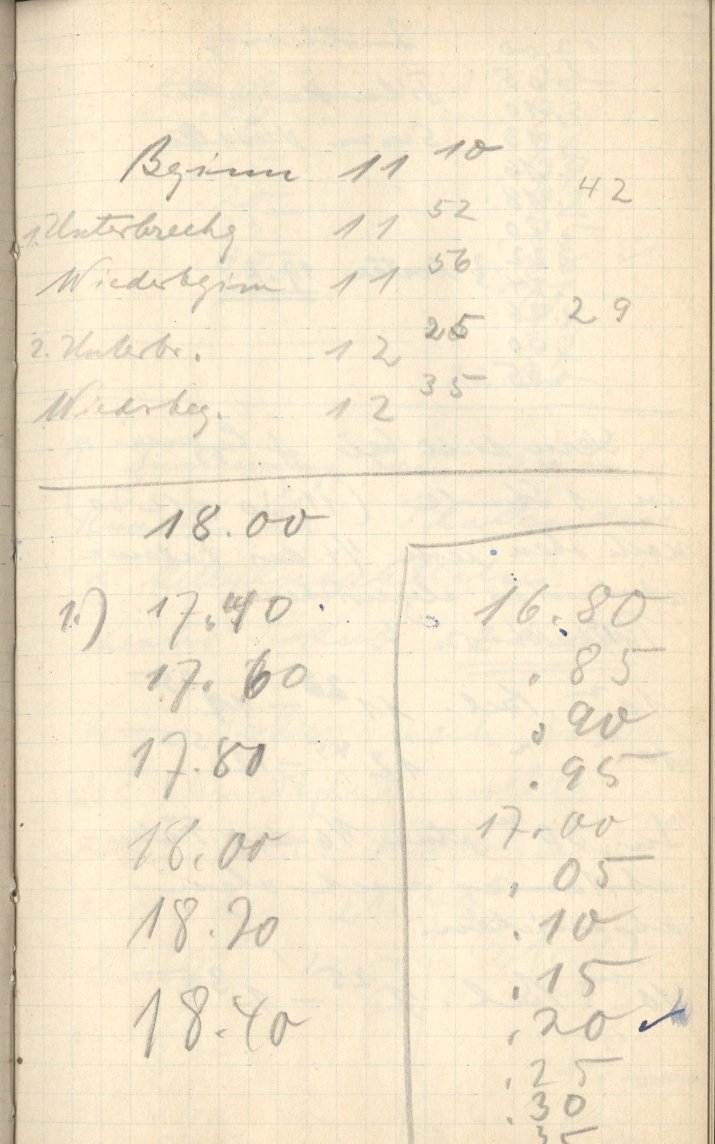 Beginn 11 10
42
1. Unterbrechg 11 52
Wiederbeginn 11 56
29
2. Unterbr. 12 25
Wiederbeg. 12 35
18.00
1.) 17.40
17.60
17.80
18.00
18.20
18.40
16.80
.85
.90
.95
17.00
.05
.10
.15
.20 ✓
.25
.30
35